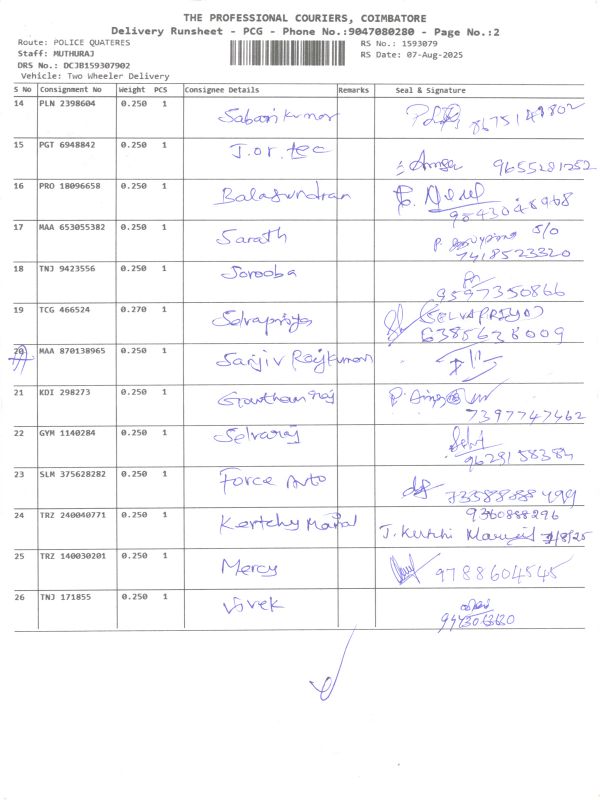 THE PROFESSIONAL COURIERS, COIMBATORE
Delivery Runsheet - PCG - Phone No.:9047080280 - Page No.:2
Route: POLICE QUATERES RS No.: 1593079
Staff: MUTHURAJ RS Date: 07-Aug-2025
DRS No.: DCJB159307902
Vehicle: Two Wheeler Delivery
S No Consignment No Weight PCS Consignee Details Remarks Seal & Signature
14 PLN 2398604 0.250 1 Sabarikumar 8675149802
15 PGT 6948842 0.250 1 J.or.tec 9655281252
16 PRO 18096658 0.250 1 Balasundran
17 MAA 653055382 0.250 1 Sarath S/O
7418523320
18 TNJ 9423556 0.250 1 Sorooba
9597350866
19 TCG 466524 0.270 1 Selvapriya (SELVAPRIYA)
6385628009
20 MAA 870138965 0.250 1 Sanjiv Rajkumar
21 KDI 298273 0.250 1 Gowthamraj
7397747462
22 GYM 1140284 0.250 1 Selvaraj
9629158384
23 SLM 375628282 0.250 1 Force Auto
24 TRZ 240040771 0.250 1 9360888296
25 TRZ 140030201 0.250 1 Mercy 9788604545
26 TNJ 171855 0.250 1 Vivek